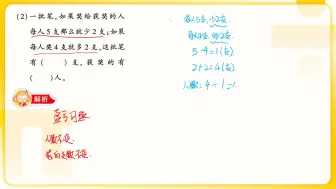 (2)一批笔,如果奖给获奖的人
每人5支那么就少2支;如果
每人奖4支就多2支,这批笔
有( )支,获奖的有
( )人。
解析
盈亏问题
人数不变
笔的支数不变
每人5支,少2支
每人4支,多2支
5-4=1(支)
2+2=4(支)
人数:4÷1=